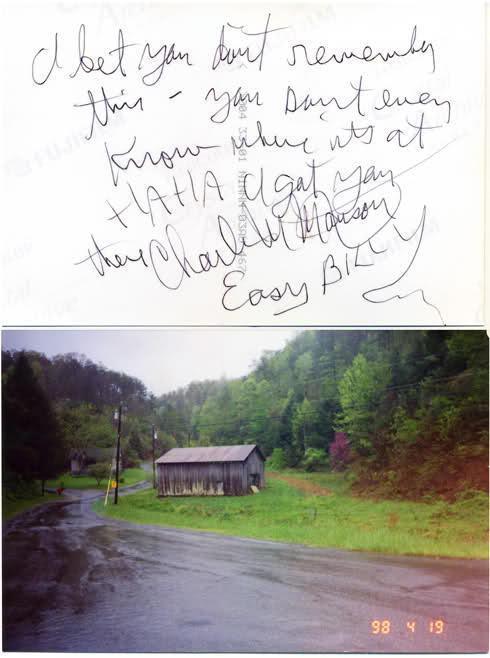 I bet you don't remember
this - you don't even
know where its at
HAHA I got you
there Charlie M Manson
Easy BILLY
98 4 19